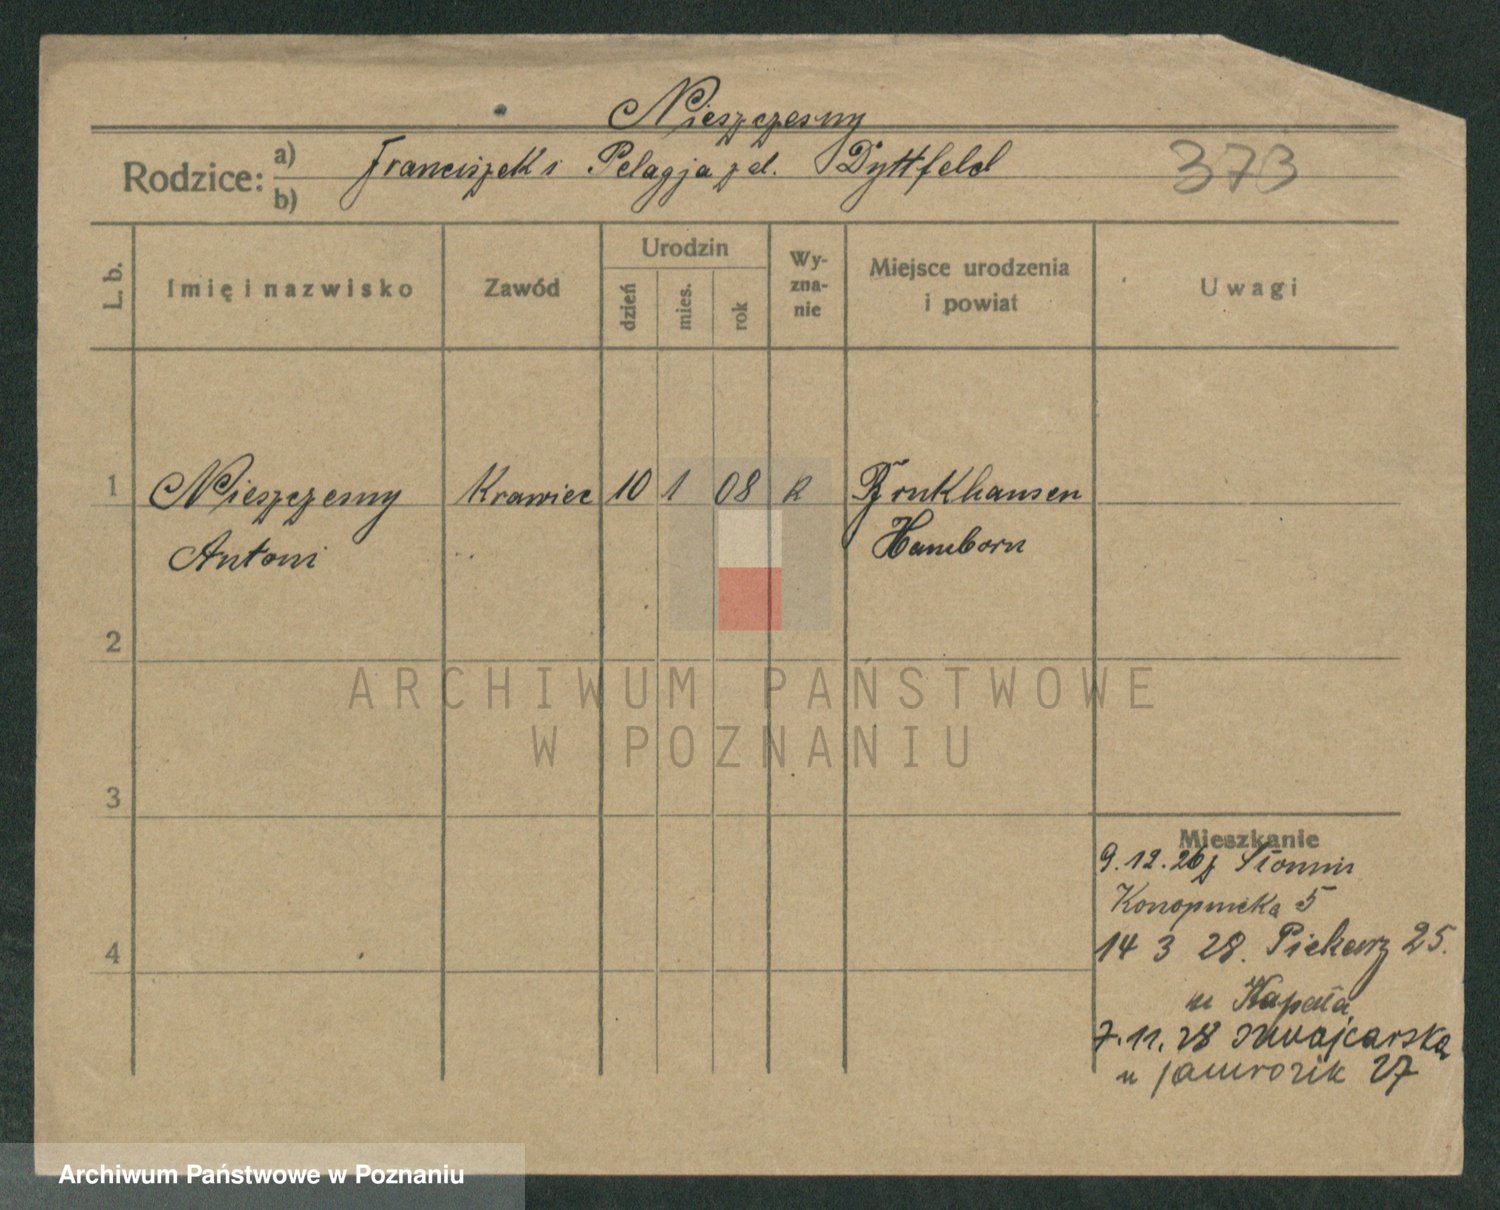 Nieszczesny
Rodzice: a) Franciszek i Pelagja z d. Dyttfeld
b)
373
L. b.
Imię i nazwisko
Zawód
Urodzin
dzień
mies.
rok
Wy-
zna-
nie
Miejsce urodzenia
i powiat
Uwagi
1 Nieszczesny Krawiec 10 1 08 R Bruckhausen
Antoni Hamborn
2
3
4
ARCHIWUM PAŃSTWOWE
W POZNANIU
Mieszkanie
9.12.26 z
Konopnicka 5
14 3 28. Piekary 25.
u Kapała
7.11.28 Szwajcarska
u Jamrozik 27
Archiwum Państwowe w Poznaniu